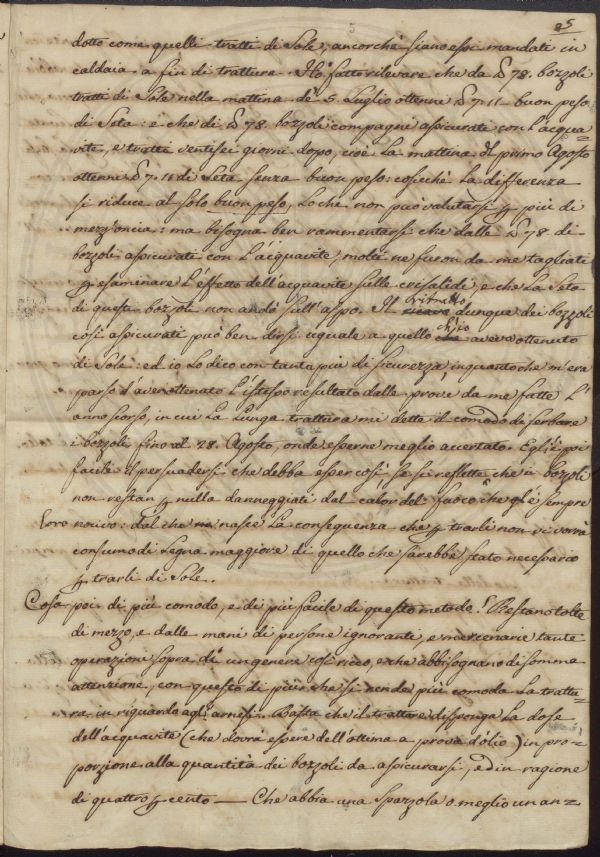 5
25
dotto come quelli tratti di Sole, ancorchè siano essi mandati in
caldaia a fin di trattura. Hò fatto rilevare che da ₶ 78. bozzoli
tratti di Sole nella mattina de' 5. Luglio ottenni ₶ 7.11 buon peso
di Seta: e che di ₶ 78 bozzoli compagni assicurati con l'acqua=
vite, e tratti ventisei giorni dopo, cioè La mattina del primo Agosto
ottenni ₶ 7.11 di Seta senza buon peso: cosicchè La differenza
si riduce al solo buon peso, Loche non può valutarsi p più di
mezz'oncia: ma bisogna ben rammentarsi che dalle ₶ 78 di
bozzoli assicurati con L'acquavite, molti ne furon da me tagliati
p esaminare L'effetto dell'acquavite sulle crisalidi, e che La Seta
di questi bozzoli non andò sull'aspo. Il ritratto dunque dei bozzoli
così assicurati può ben dirsi uguale a quello ch'io aveva ottenuto
di Sole: ed io Lo dico con tanta più di sicurezza, inquanto che m'era
parso d'aver ottenuto L'istesso resultato dalle prove da me fatte L'
anno scorso, in cui La Lunga trattura mi dette il comodo di serbare
i bozzoli fino al 28. Agosto, onde esserne meglio accertato. Egli è poi
facile il persuadersi che debba esser così se si reflette che i bozzoli
non restan p nulla danneggiati dal calor del fuoco che gl'è sempre
Loro nocivo: dal che nasce La conseguenza che p trarli non vi vorrà
consumo di Legna maggiore di quello che sarebbe stato necessario
p trarli di Sole.
Cosa poi di più comodo, e di più facile di questo metodo? Restano tolte
di mezzo, e dalle mani di persone ignoranti, e mercenarie tante
operazioni sopra di un genere così ricco, e che abbisognano di somma
attenzione, con questo di più che si rende più comoda La trattu=
ra in riguardo agl'arnesi. Basta che il trattore disponga La dose
dell'acquavite (che dovrà essere dell'ottima a prova d'olio) in pro=
porzione alla quantità dei bozzoli da assicurarsi, ed in ragione
di quattro p cento — Che abbia una Spazzola o meglio un an=